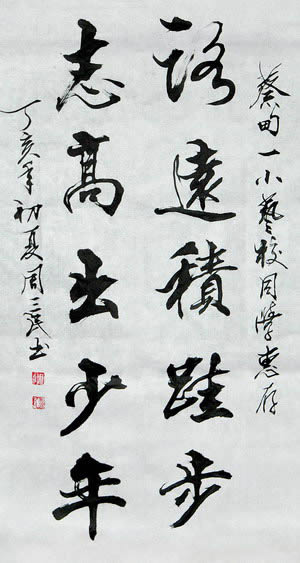 蔡甸一小藝校同學惠存
路遠積跬步
志高出少年
丁亥年初夏周三民书